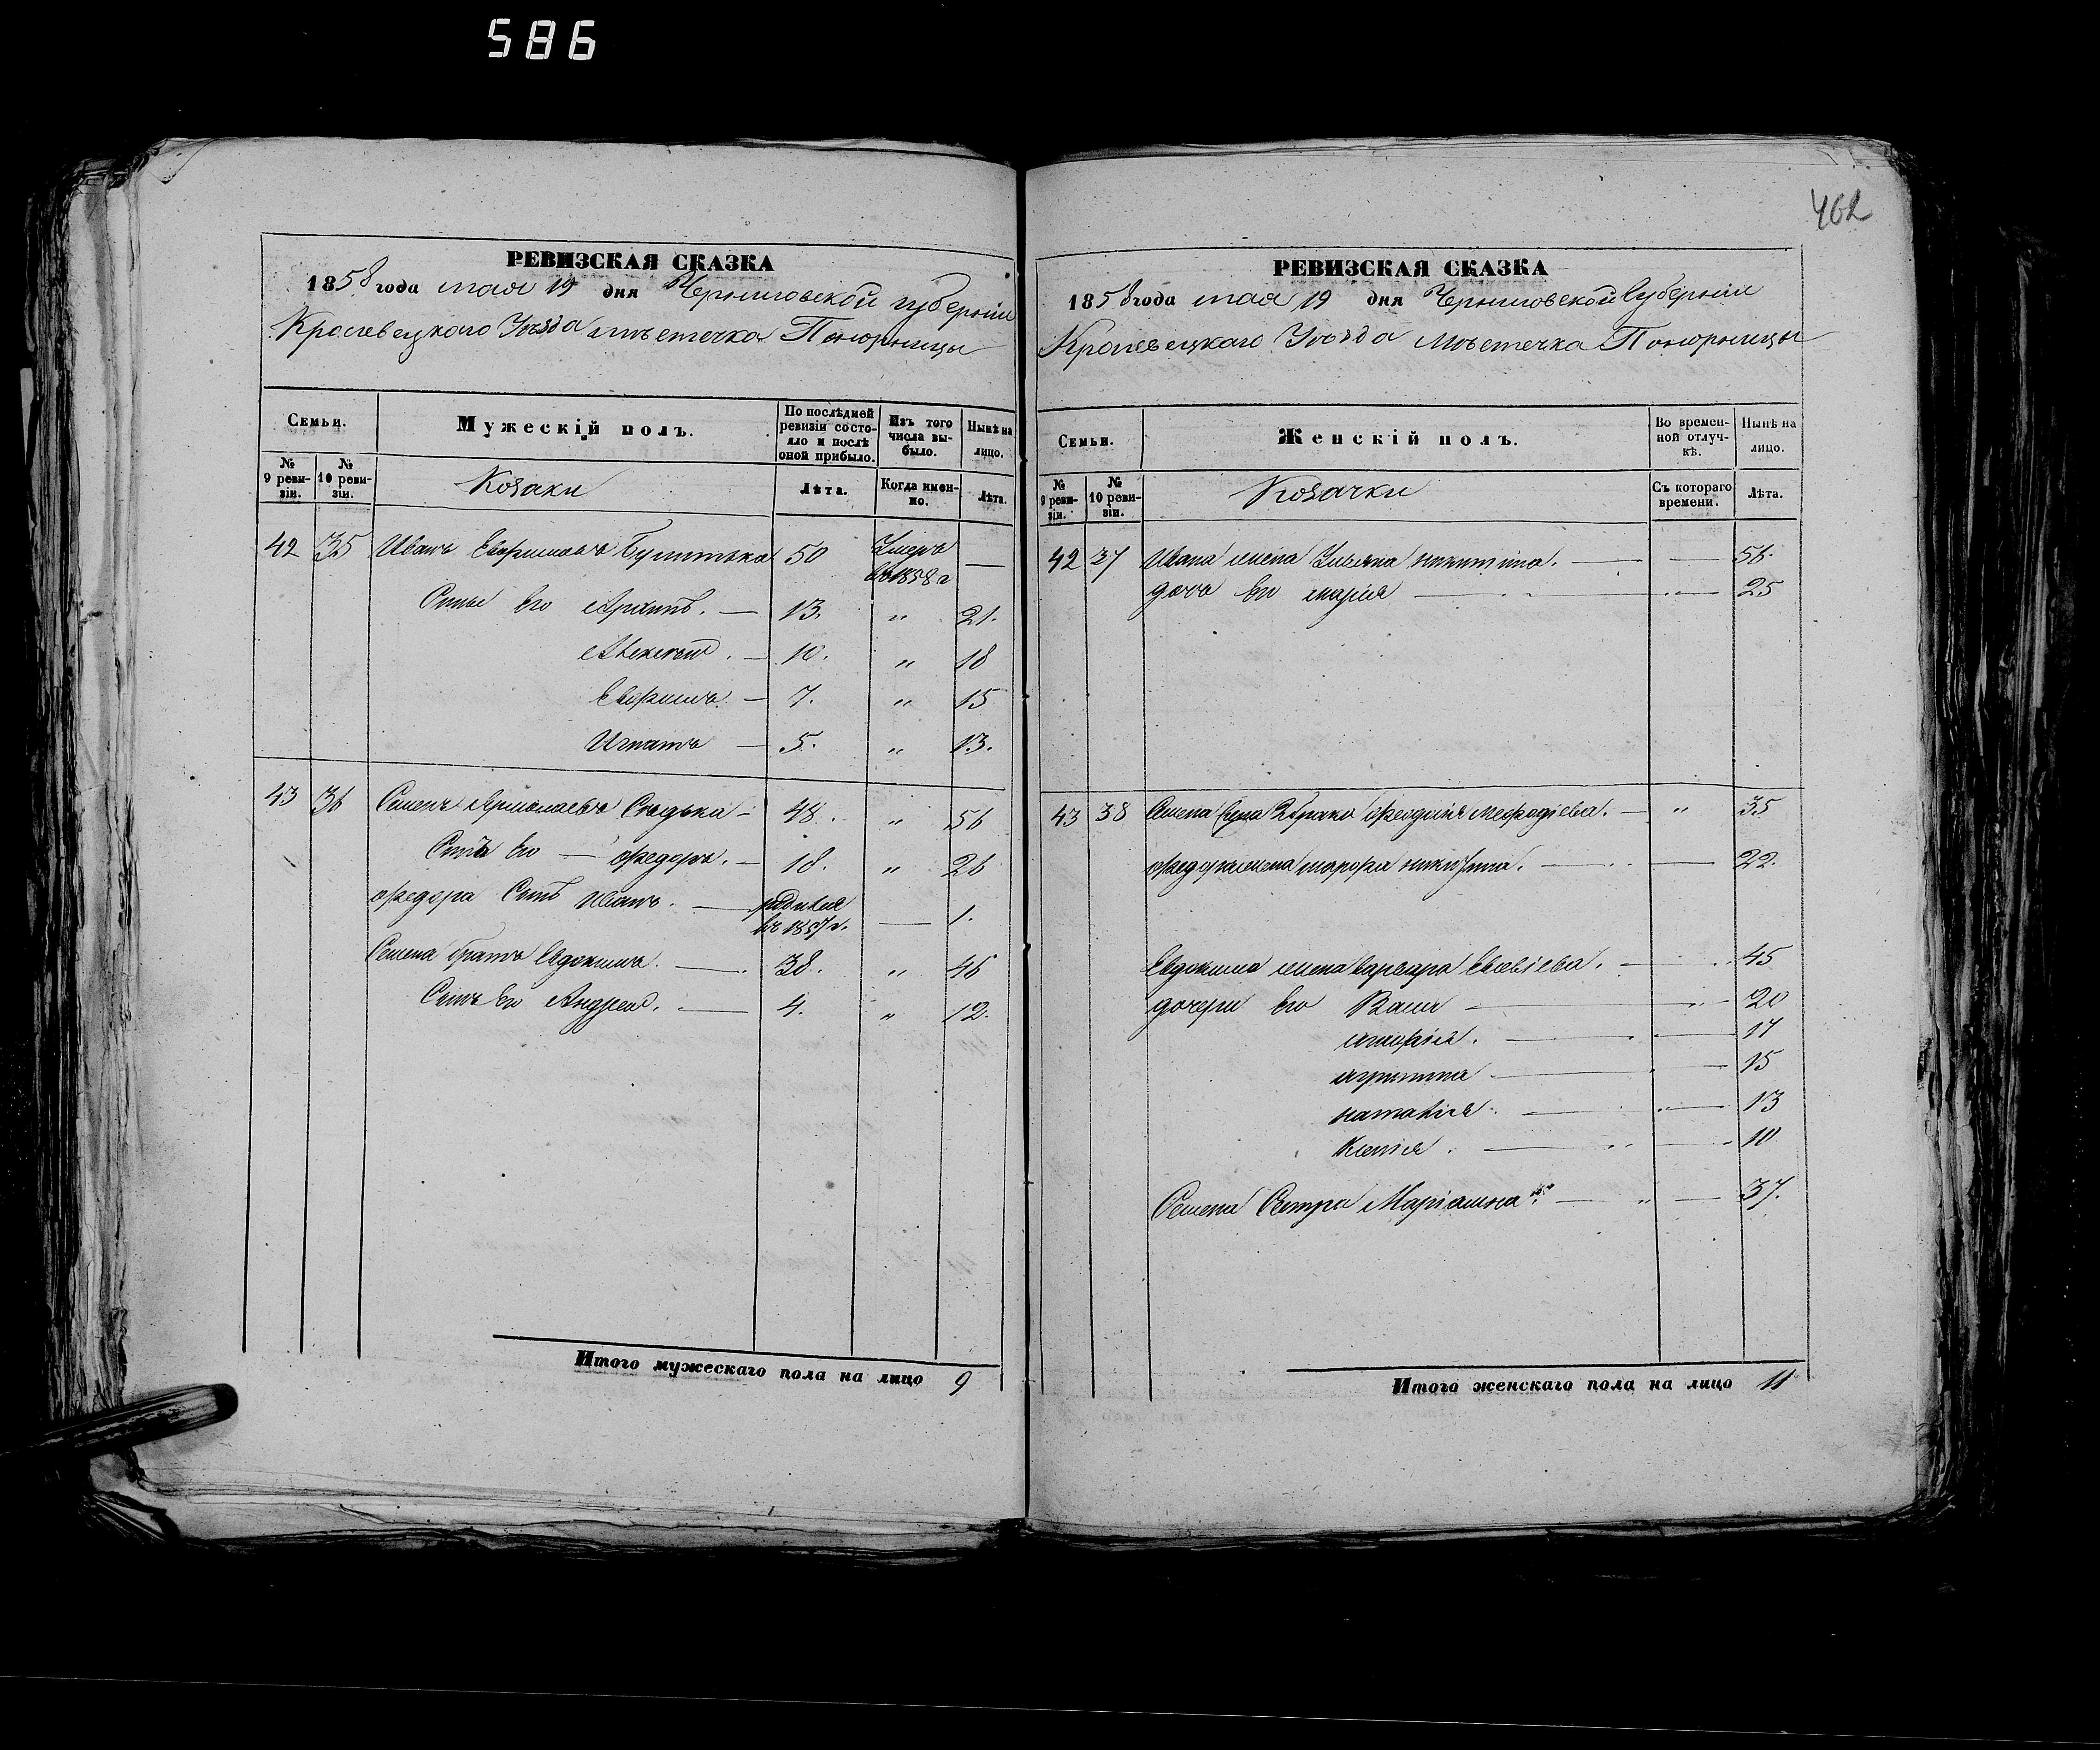 586
РЕВИЗСКАЯ СКАЗКА
1858 года мая 19 дня Черниговской губерніи
Кролевецкаго Уѣзда мѣстечка Понорницы
Семьи.
Мужескій полъ.
По послѣдней ревизіи состояло и послѣ оной прибыло.
Изъ того числа выбыло.
Нынѣ на лицо.
№ 9 ревизіи.
№ 10 ревизіи.
Козаки
Лѣта.
Когда именно.
Лѣта.
42 35 Иванъ 50 Умеръ въ 1858 г —
Сыны его Архипъ. — 13. " 21.
Алексей. — 10. " 18
— 7. " 15
Игнатъ — 5. " 13.
43 36 Семенъ Ярмолаевъ — 48. " 56
Сынъ его — Федоръ. — 18. " 26
Федора Сынъ Иванъ. — родился въ 1857 г. — 1.
Семена братъ Евдокимъ. — 38. " 46
Сынъ его Андрей. — 4. " 12.
Итого мужескаго пола на лицо 9
462
РЕВИЗСКАЯ СКАЗКА
1858 года мая 19 дня Черниговской Губерніи
Кролевецкаго Уѣзда Мѣстечка Понорницы
Семьи.
Женскій полъ.
Во временной отлучкѣ.
Нынѣ на лицо.
№ 9 ревизіи.
№ 10 ревизіи.
Козачки
Съ котораго времени.
Лѣта.
42 37 Ивана жена Ульяна никитина. — — 56.
дочь его марія — — 25
43 38 Семена 2 брака Мефодіева. — " 35
Федора жена — — 22.
Евдокима жена варвара — 45
дочери его — 20
— — 17
— — 15
наталія — — 13
Ксенія. — — 10
Семена Сестра Маріамна — " — 37.
Итого женскаго пола на лицо 11